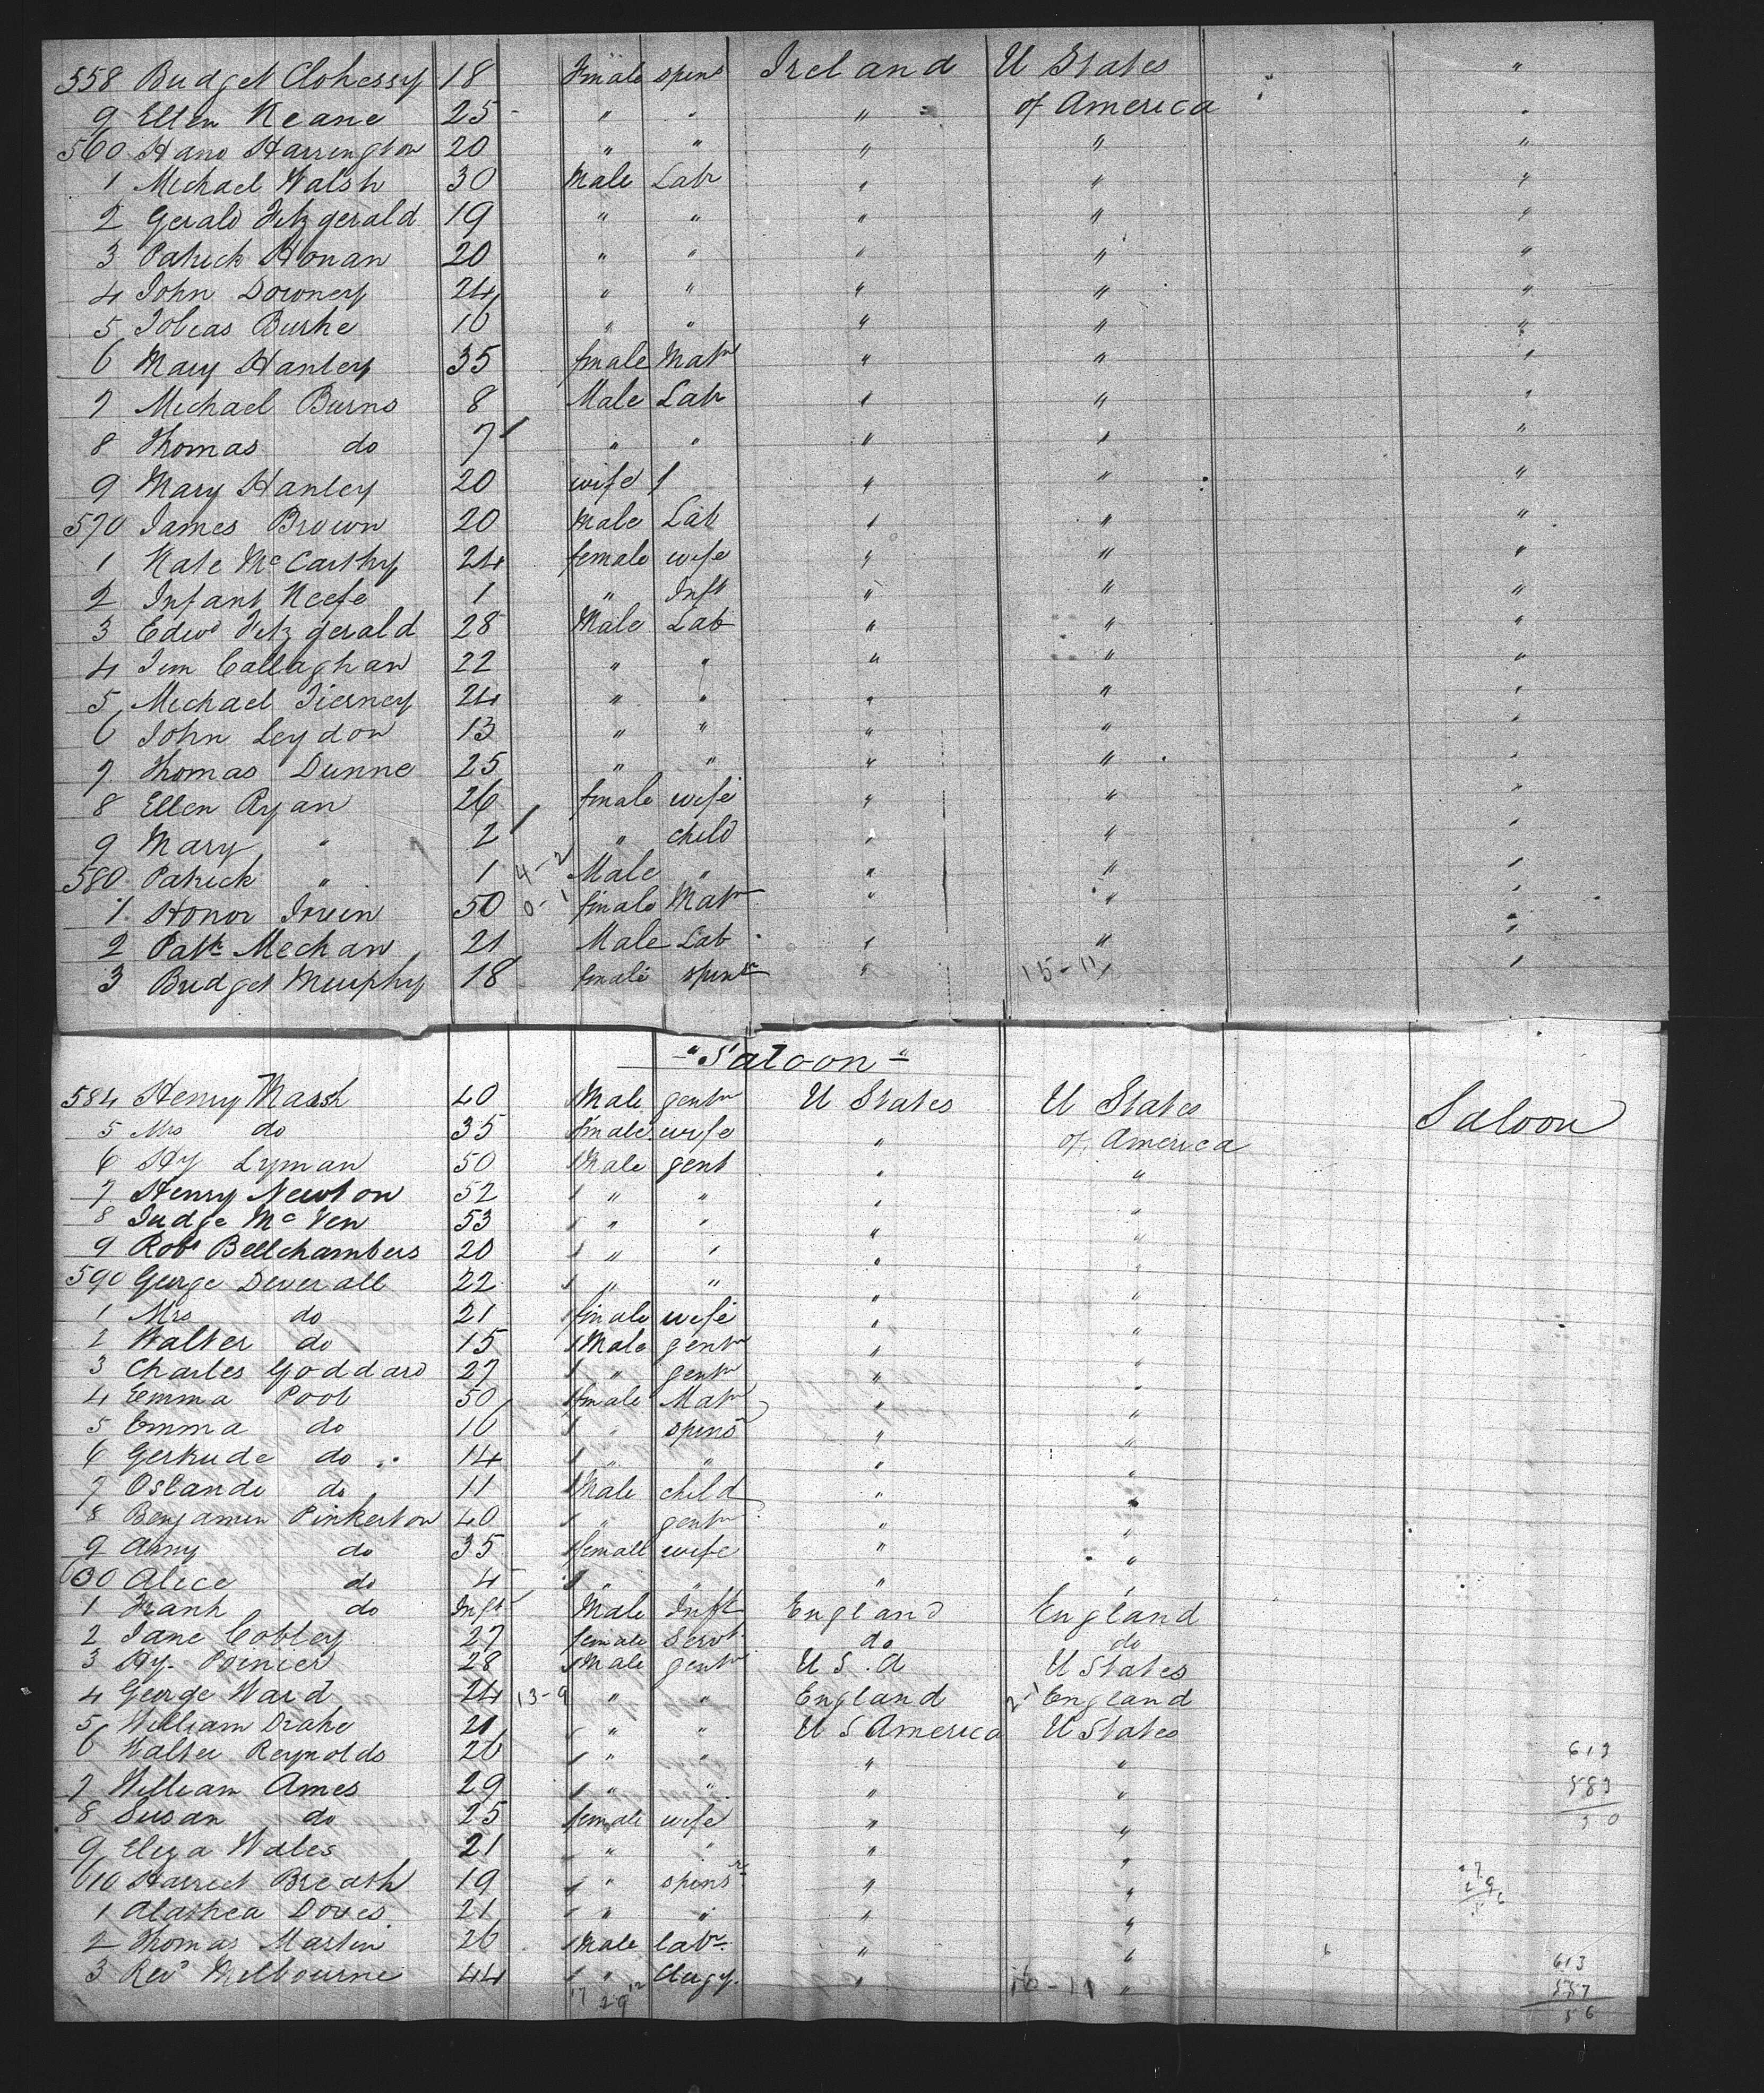 558 Bridget Clohessy 18 Female spins Ireland U States "
9 Ellen Keane 25 " " " of America "
560 Hano Harrington 20 " " " " "
1 Michael Walsh 30 Male Labr " " "
2 Gerald Fitzgerald 19 " " " " "
3 Patrick Honan 20 " " " " "
4 John Downey 24 " " " " "
5 Tobias Burke 16 " " " " "
6 Mary Hanley 35 fmale Matrn " " "
7 Michael Burns 8 Male Labr " " "
8 Thomas do 7 " " " " "
9 Mary Hanley 20 wife 1 " " "
570 James Brown 20 Male Lab " " "
1 Kate McCarthy 24 female wife " " "
2 Infant Keefe 1 " Inft " " "
3 Edwd Fitzgerald 28 Male Lab " " "
4 Jim Callaghan 22 " " " " "
5 Michael Tierney 24 " " " " "
6 John Leydon 13 " " " " "
7 Thomas Dunne 25 " " " " "
8 Ellen Ryan 26 fmale wife " " "
9 Mary " 2 " child " " "
580 Patrick " 1 4-2 Male " " " "
1 Honor Irvin 50 0-1 fmale Matrn " " "
2 Patk Mechan 21 Male Lab " " "
3 Bridget Murphy 18 fmale spinsr " 15-11 "
"Saloon"
584 Henry Marsh 40 Male gentn U States U States Saloon
5 Mrs do 35 fmale wife " of America
6 Hy Lyman 50 Male gent " "
7 Henry Newton 52 " " " "
8 Judge McVen 53 " " " "
9 Robt Bellchambers 20 " " " "
590 George Deverall 22 " " " "
1 Mrs do 21 fmale wife " "
2 Walter do 15 Male gentn " "
3 Charles Goddard 27 " gentn " "
4 Emma Pool 50 fmale Matrn " "
5 Emma do 16 " spins " "
6 Gertrude do 14 " " " "
7 Oslande do 11 Male child " "
8 Benjamin Pinkerton 40 " gentn " "
9 Anny do 35 female wife " "
600 Alice do 4 " " " "
1 Frank do Inft Male Inft England England
2 Jane Cobley 27 female Servt do do
3 Hy. Poinier 28 Male gentn U S.A U States
4 George Ward 24 13-9 " " England 2-1 England
5 William Drake 21 " " U S America U States
6 Walter Reynolds 26 " " " "
613
7 William Ames 29 " " " "
583
8 Susan do 25 female wife " "
30
9 Eliza Wales 21 " " " "
610 Harriet Breath 19 " spinsr " "
1 Alathea Doves 21 " " " "
2 Thomas Martin 26 Male labr " "
3 Revd Milbourne 44 " Clergy. " "
613
557
56
17 29 12 16-11